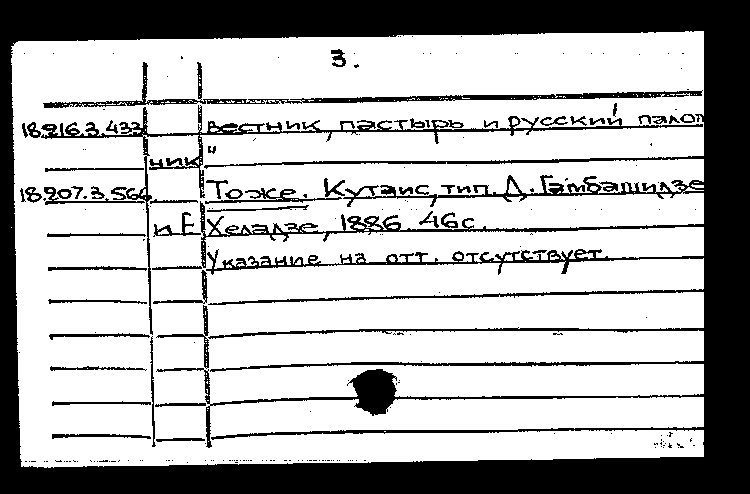 3.
18.216.3.433 вестник, пастырь и русский палом
ник"
18.207.3.566 Тоже. Кутаис, тип. Д. Гамбашидзе
и Е Хеладзе, 1886. 46с.
Указание на отт. отсутствует.